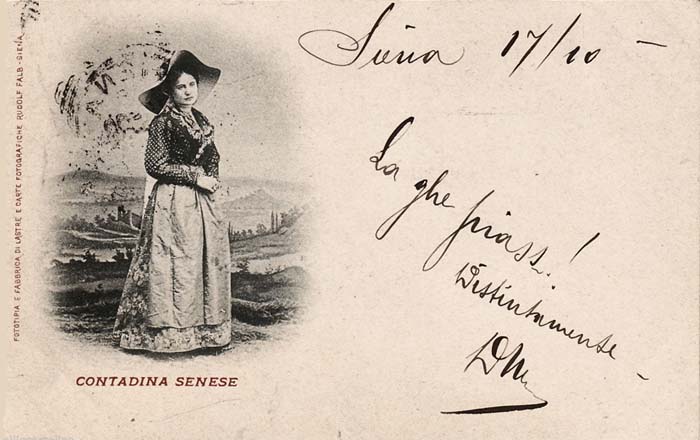 Siena 17/10 —
La ghe piass!
Distintamente —
CONTADINA SENESE
FOTOTIPIA E FABBRICA DI LASTRE E CARTE FOTOGRAFICHE RUDOLF FALB - SIENA